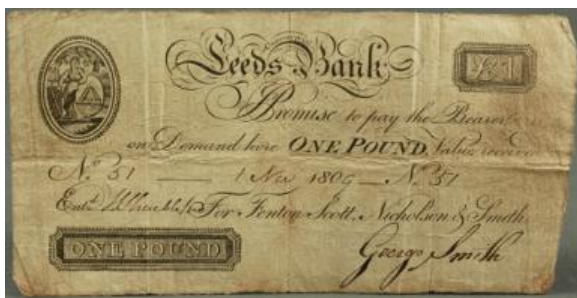 Leeds Bank
£1
I Promise to pay the Bearer
on Demand here ONE POUND Value receiv
No. 51 1 Nov 180 No. 51
Entd. For Fenton Scott, Nicholson & Smith
ONE POUND
George Smith